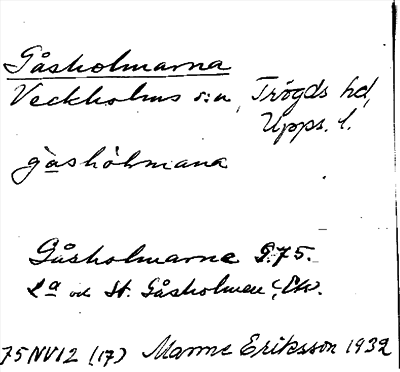 Gåsholmarna
Veckholms s:n, Trögds hd,
Upps. l.
gåshòlmana
Gåsholmarne G.75.
La och St. Gåsholmen
75NV12 (17) Manne Eriksson 1932